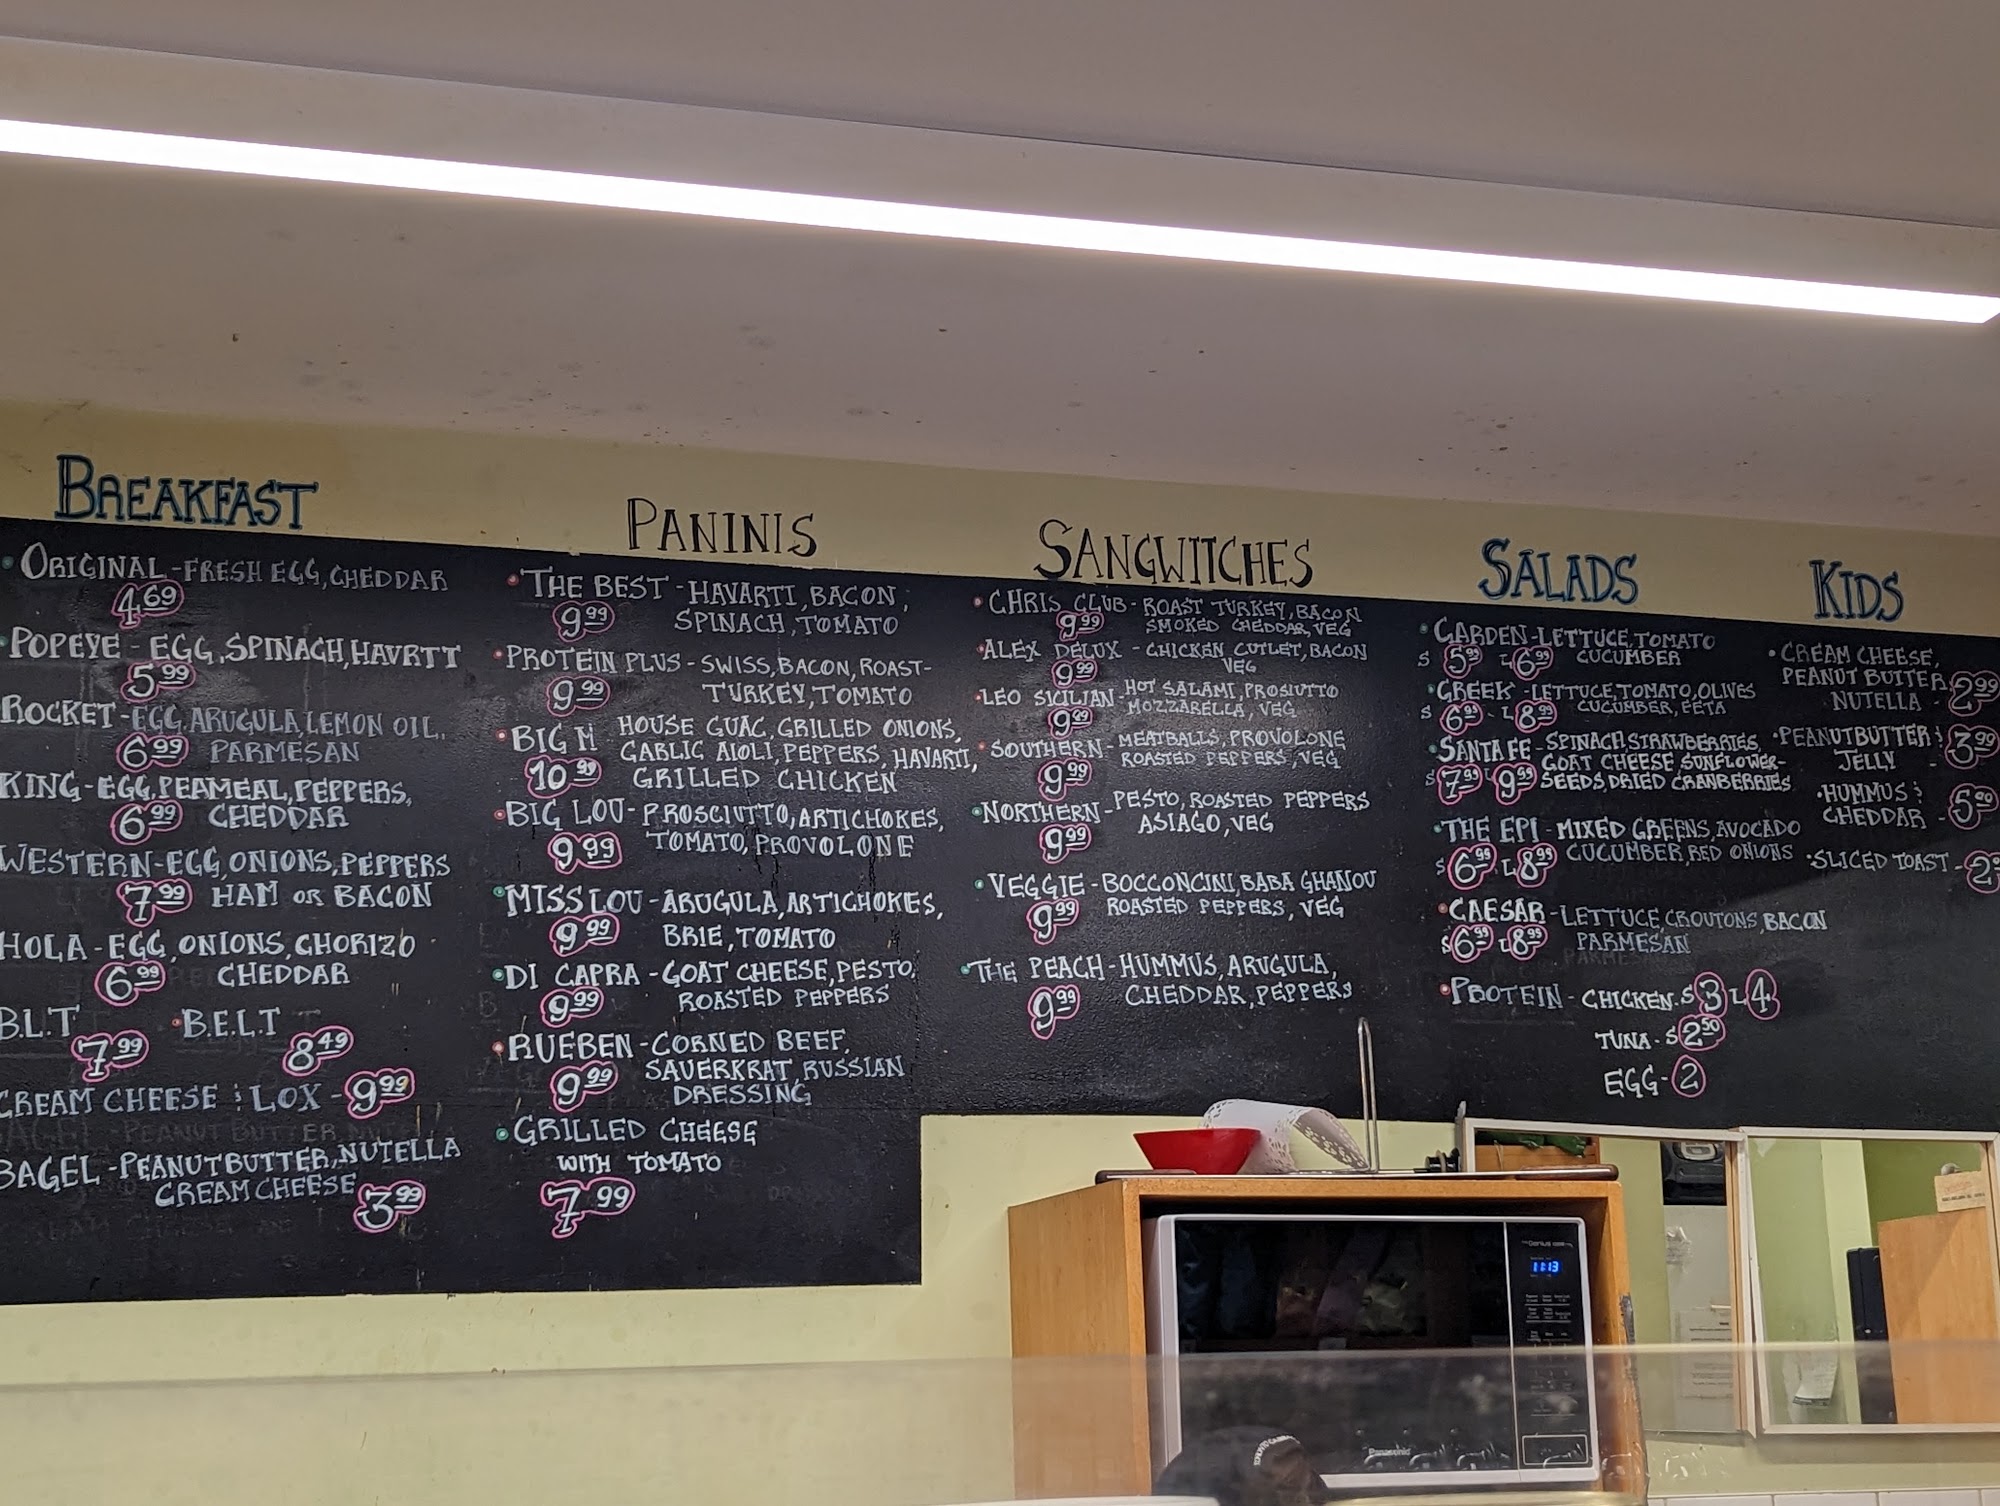 BREAKFAST
ORIGINAL - FRESH EGG, CHEDDAR
4.69
POPEYE - EGG, SPINACH, HAVRTI
5.99
ROCKET - EGG, ARUGULA, LEMON OIL,
6.99 PARMESAN
KING - EGG, PEAMEAL, PEPPERS,
6.99 CHEDDAR
WESTERN - EGG, ONIONS, PEPPERS
7.99 HAM OR BACON
HOLA - EGG, ONIONS, CHORIZO
6.99 CHEDDAR
B.L.T B.E.L.T
7.99 8.49
CREAM CHEESE & LOX - 9.99
BAGEL - PEANUTBUTTER, NUTELLA
CREAM CHEESE
3.99
PANINIS
THE BEST - HAVARTI, BACON,
9.99 SPINACH, TOMATO
PROTEIN PLUS - SWISS, BACON, ROAST-
9.99 TURKEY, TOMATO
BIG M HOUSE GUAC, GRILLED ONIONS,
GARLIC AIOLI, PEPPERS, HAVARTI,
10.99 GRILLED CHICKEN
BIG LOU - PROSCIUTTO, ARTICHOKES,
9.99 TOMATO, PROVOLONE
MISS LOU - ARUGULA, ARTICHOKES,
9.99 BRIE, TOMATO
DI CAPRA - GOAT CHEESE, PESTO,
9.99 ROASTED PEPPERS
RUEBEN - CORNED BEEF,
9.99 SAUERKRAT, RUSSIAN
DRESSING
GRILLED CHEESE
WITH TOMATO
7.99
SANGWITCHES
CHRIS CLUB - ROAST TURKEY, BACON
9.99 SMOKED CHEDDAR, VEG
ALEX DELUX - CHICKEN CUTLET, BACON
9.99 VEG
LEO SICILIAN - HOT SALAMI, PROSIUTTO
9.99 MOZZARELLA, VEG
SOUTHERN - MEATBALLS, PROVOLONE
9.99 ROASTED PEPPERS, VEG
NORTHERN - PESTO, ROASTED PEPPERS
9.99 ASIAGO, VEG
VEGGIE - BOCCONCINI, BABA GHANOU
9.99 ROASTED PEPPERS, VEG
THE PEACH - HUMMUS, ARUGULA,
9.99 CHEDDAR, PEPPERS
SALADS
GARDEN - LETTUCE, TOMATO
S 5.99 L 6.99 CUCUMBER
GREEK - LETTUCE, TOMATO, OLIVES
S 6.99 - L 8.99 CUCUMBER, FETA
SANTA FE - SPINACH, STRAWBERRIES,
GOAT CHEESE, SUNFLOWER-
S 7.99 L 9.99 SEEDS, DRIED CRANBERRIES
THE EPI - MIXED GREENS, AVOCADO
S 6.99 L 8.99 CUCUMBER, RED ONIONS
CAESAR - LETTUCE, CROUTONS, BACON
S 6.99 L 8.99 PARMESAN
PROTEIN - CHICKEN - S 3 L 4
TUNA - S 2.50
EGG - 2
KIDS
CREAM CHEESE,
PEANUT BUTTER,
NUTELLA - 2.99
PEANUTBUTTER &
JELLY - 3.99
HUMMUS &
CHEDDAR -
SLICED TOAST -
11:13
Panasonic